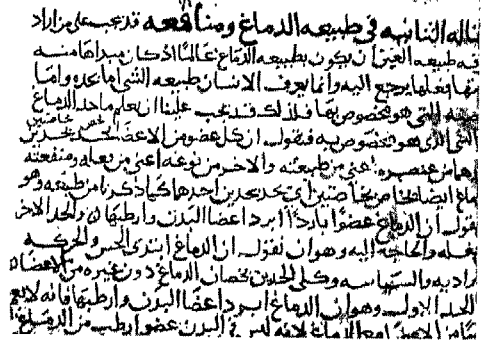 المقالة الثانية في طبيعة الدماغ ومنافعه قد يجب على من اراد
طبيعة العين ان يكون بطبيعة الدماغ عالمًا اذ كان مبداها منه
فعلها يرجع اليه وانما يعرف الانسان طبيعة الشي اما بحده واما
التي هو مخصوص بها فلذلك قد يجب علينا ان نعلم ما حد الدماغ
الشي الذي هو مخصوص به فنقول ان كل عضو من الاعضا يحد بحدين
من عنصره اعني من طبيعته والاخر من نوعه اعني من فعله ومنفعته
ايضا بحدين احدهما كما ذكرنا من طبيعته وهو
نقول ان الدماغ عضوًا باردًا ابرد اعضا البدن وارطبها والحد الاخر
بفعله والحاجة اليه وهو ان نقول ان الدماغ ابتدى الحس والحركة
الارادية والسياسة وكلى الحدين يخصان الدماغ دون غيره من الاعضاء
الحد الاول وهو ان الدماغ ابرد اعضا البدن وارطبها فانه لا
الدماغ لانه ليس في البدن عضو ارطب من الدماغ